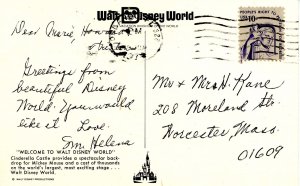 Walt Disney World
Dear Maré, Howard
Greetings from
beautiful Disney
World. You would
like it Love.
Sm. Helena
"WELCOME TO WALT DISNEY WORLD"
Cinderella Castle provides a spectacular back-
drop for Mickey Mouse and a cast of thousands
on the world's largest, most exciting stage . . .
Walt Disney World.
© WALT DISNEY PRODUCTIONS
PEOPLE'S RIGHT TO
10c
PM
Mr & Mrs H. Kane
208 Moreland St.
Worcester, Mass.
01609